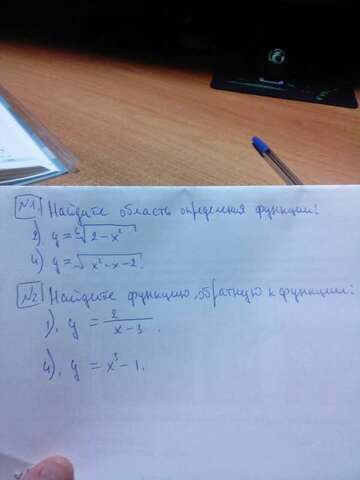 №1 Найдите область определения функции:
2) y = ⁶√(2 - x²)
4) y = √(x² - x - 2).
№2 Найдите функцию, обратную к функции:
1), y = 2/(x - 3).
4), y = x³ - 1.